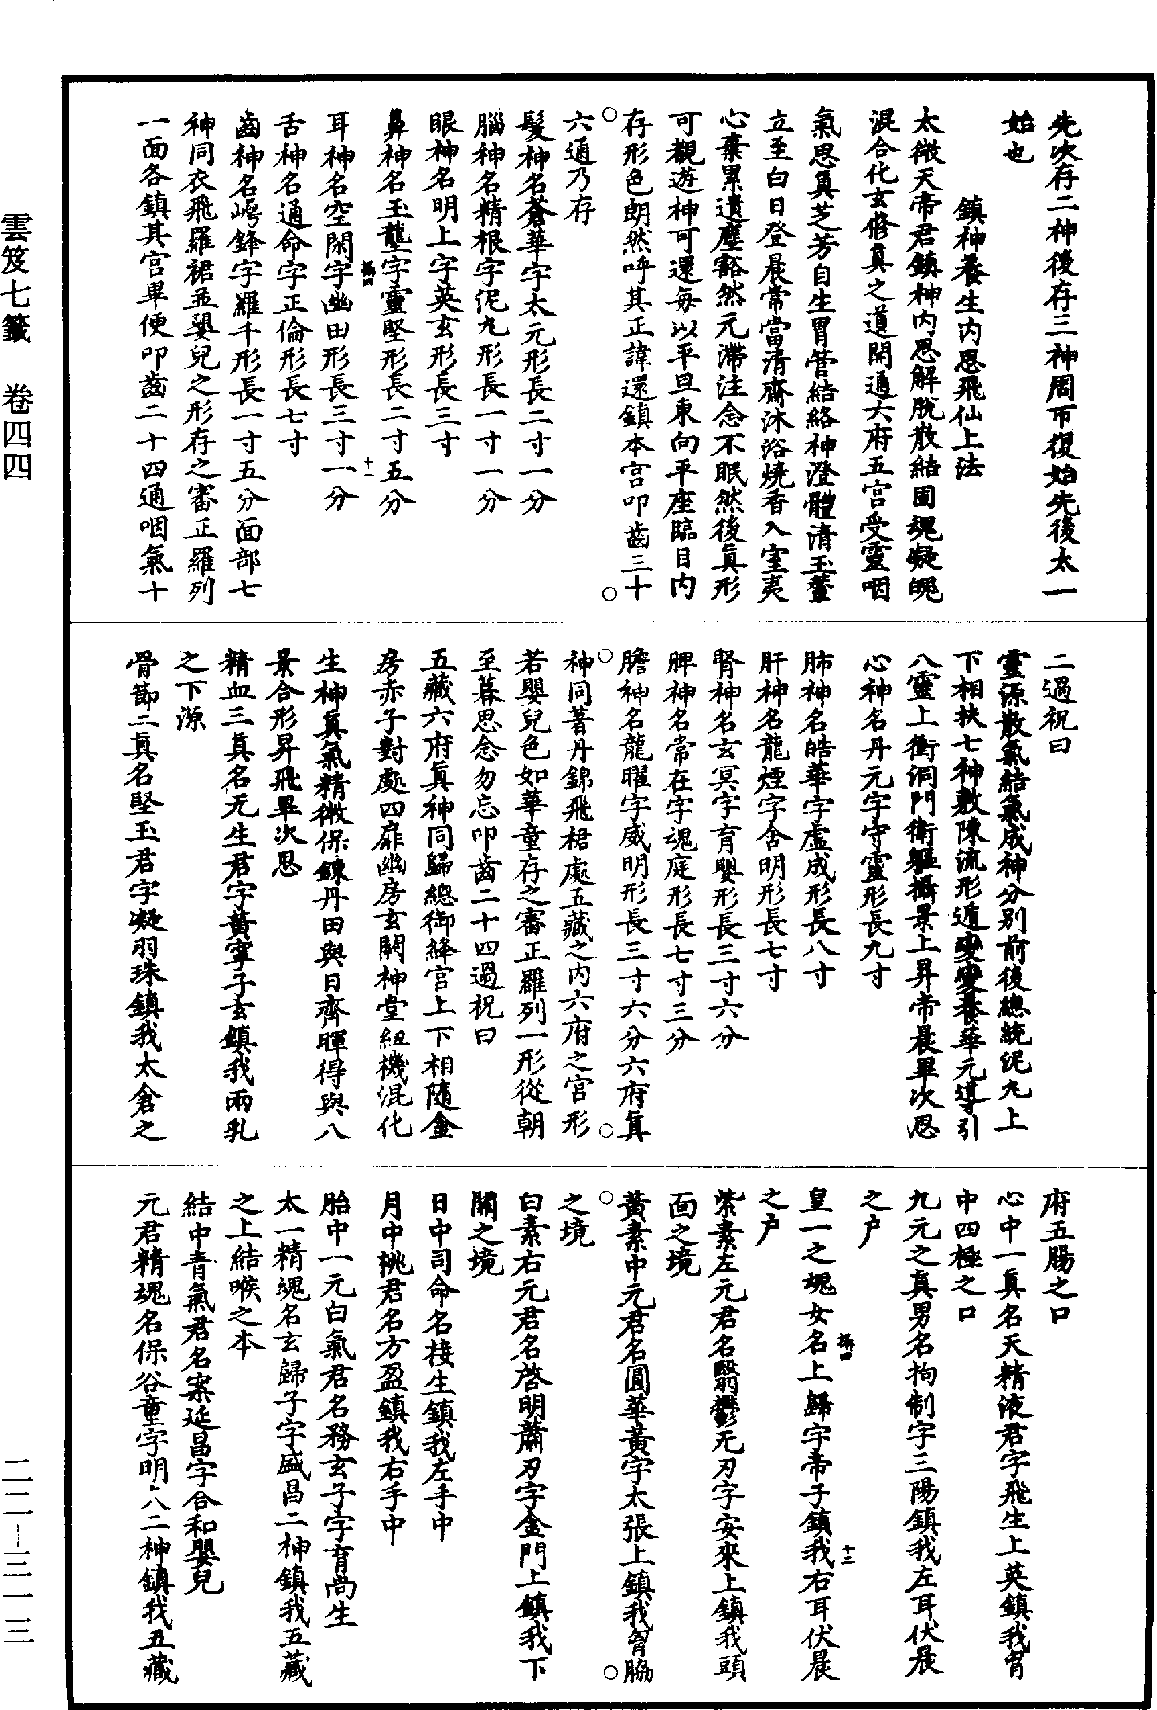 先次存二神後存三神周帀復始先後太一
始也
鎮神養生內思飛仙上法
太微天帝君鎮神內思解脫散結固魂凝魄
混合化玄修真之道開通六府五宮受靈咽
氣思真芝芳自生胃管結絡神澄體清玉華
立至白日登晨常當清齋沐浴燒香入室夷
心棄累遺塵豁然元滯注念不眠然後真形
可觀遊神可還每以平旦東向平座臨目內
存形色朗然呼其正諱還鎮本宮叩齒三十
六通乃存
髮神名蒼華字太元形長二寸一分
腦神名精根字泥丸形長一寸一分
眼神名明上字英玄形長三寸
鼻神名玉壟字靈堅形長二寸五分
耳神名空閑字幽田形長三寸一分
舌神名通命字正倫形長七寸
齒神名崿鋒字羅千形長一寸五分面部七
神同衣飛羅裙並嬰兒之形存之審正羅列
一面各鎮其宮畢便叩齒二十四通咽氣十
二過祝曰
靈源散氣結氣成神分別前後總統泥丸上
下相扶七神敷陳流形遁變變養華元導引
八靈上衝洞門衛軀攝景上昇帝晨畢次思
心神名丹元字守靈形長九寸
肺神名皓華字虛成形長八寸
肝神名龍煙字含明形長七寸
腎神名玄冥字育嬰形長三寸六分
脾神名常在字魂庭形長七寸三分
膽神名龍曜字威明形長三寸六分六府真
神同著丹錦飛裙處五藏之內六府之宮形
若嬰兒色如華童存之審正羅列一形從朝
至暮思念勿忘叩齒二十四過祝曰
五藏六府真神同歸總御絳宮上下相隨金
房赤子對處四扉幽房玄闕神堂紐機混化
生神真氣精微保鍊丹田與日齊暉得與八
景合形昇飛畢次思
精血三真名元生君字黃寧子玄鎮我兩乳
之下源
骨節二真名堅玉君字凝羽珠鎮我太倉之
府五腸之口
心中一真名天精液君字飛生上英鎮我胃
中四極之口
九元之真男名拘制字三陽鎮我左耳伏晨
之戶
皇一之魂女名上歸字帝子鎮我右耳伏晨
之戶
紫素左元君名翳鬱无刃字安來上鎮我頭
面之境
黃素中元君名圓華黃字太張上鎮我胷脇
之境
白素右元君名啓明蕭刃字金門上鎮我下
關之境
日中司命名接生鎮我左手中
月中桃君名方盈鎮我右手中
胎中一元白氣君名務玄子字育尚生
太一精魂名玄歸子字盛昌二神鎮我五藏
之上結喉之本
結中青氣君名案延昌字合和嬰兒
元君精魂名保谷童字明八二神鎮我五藏
雲笈七籤　卷四四
二二—三一三